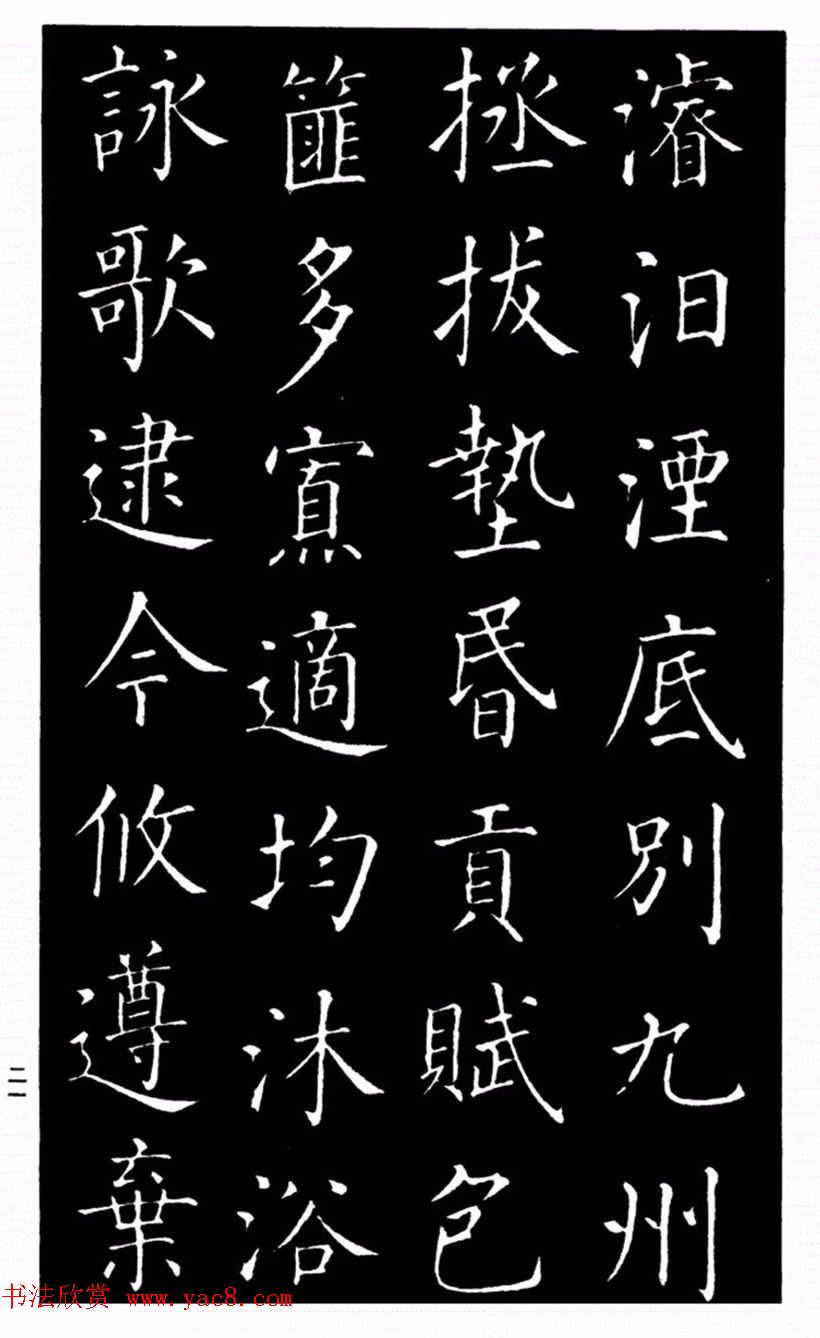 濬汨湮底別九州
拯拔墊昬貢賦包
篚多寡適均沐浴
詠歌逮今攸遵棄
二一
书法欣赏 www.yac8.com